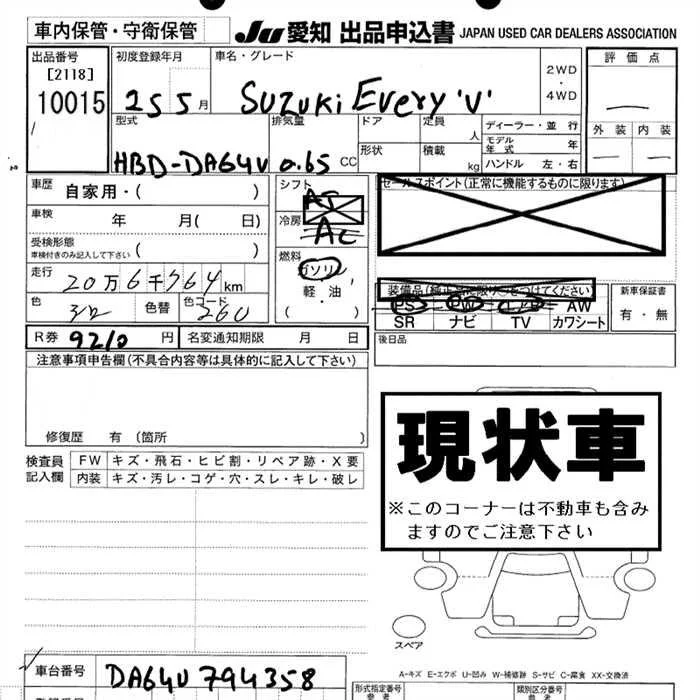 車内保管・守衛保管
JU 愛知 出品申込書 JAPAN USED CAR DEALERS ASSOCIATION
出品番号
[2118]
10015
初度登録年月
25 5 月
車名・グレード
SUZUKI EVERY 'V'
2WD
・
4WD
評価点
外装 内装
型式
HBD-DA64V
排気量
0.65 CC
ドア
形状
定員
人
積載
kg
ディーラー・並行
モデル年式 年
ハンドル 左・右
車歴 自家用・( )
車検 年 月( 日)
受検形態
車検付きのみ記入して下さい ( )
走行
20万6千764 km
色
色替
色コード
26U
シフト
A5
冷房
AC
燃料
ガソリン
軽・油
( )
セールスポイント(正常に機能するものに限ります)
装備品(純正品に限り○をつけてください)
PS PW AW
SR ナビ TV カワシート
新車保証書
有・無
R券 9210 円 名変通知期限 月 日
後日品
注意事項申告欄(不具合内容等は具体的に記入して下さい)
修復歴 有 (箇所 )
検査員
記入欄
FW キズ・飛石・ヒビ割・リペア跡・X要
内装 キズ・汚レ・コゲ・穴・スレ・キレ・破レ
現状車
※このコーナーは不動車も含み
ますのでご注意下さい
スペア
A-キズ E-エクボ U-凹み W-補修跡 S-サビ C-腐食 XX-交換済
車台番号 DA64V 794358
形式指定番号
参考
類別区分番号
参考